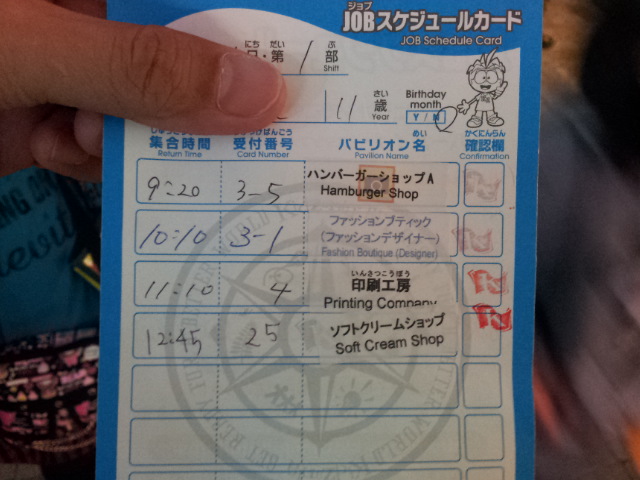 ジョブ
JOBスケジュールカード
JOB Schedule Card
にち だい ぶ
日・第 1 部
Shift
さい
11 歳
Year
Birthday month
Y / N
しゅうごうじかん うけつけばんごう めい かくにんらん
集合時間 受付番号 パビリオン名 確認欄
Return Time Card Number Pavilion Name Confirmation
9:20 3-5 ハンバーガーショップA
Hamburger Shop
10:10 3-1 ファッションブティック
(ファッションデザイナー)
Fashion Boutique (Designer)
いんさつこうぼう
11:10 4 印刷工房
Printing Company
12:45 25 ソフトクリームショップ
Soft Cream Shop